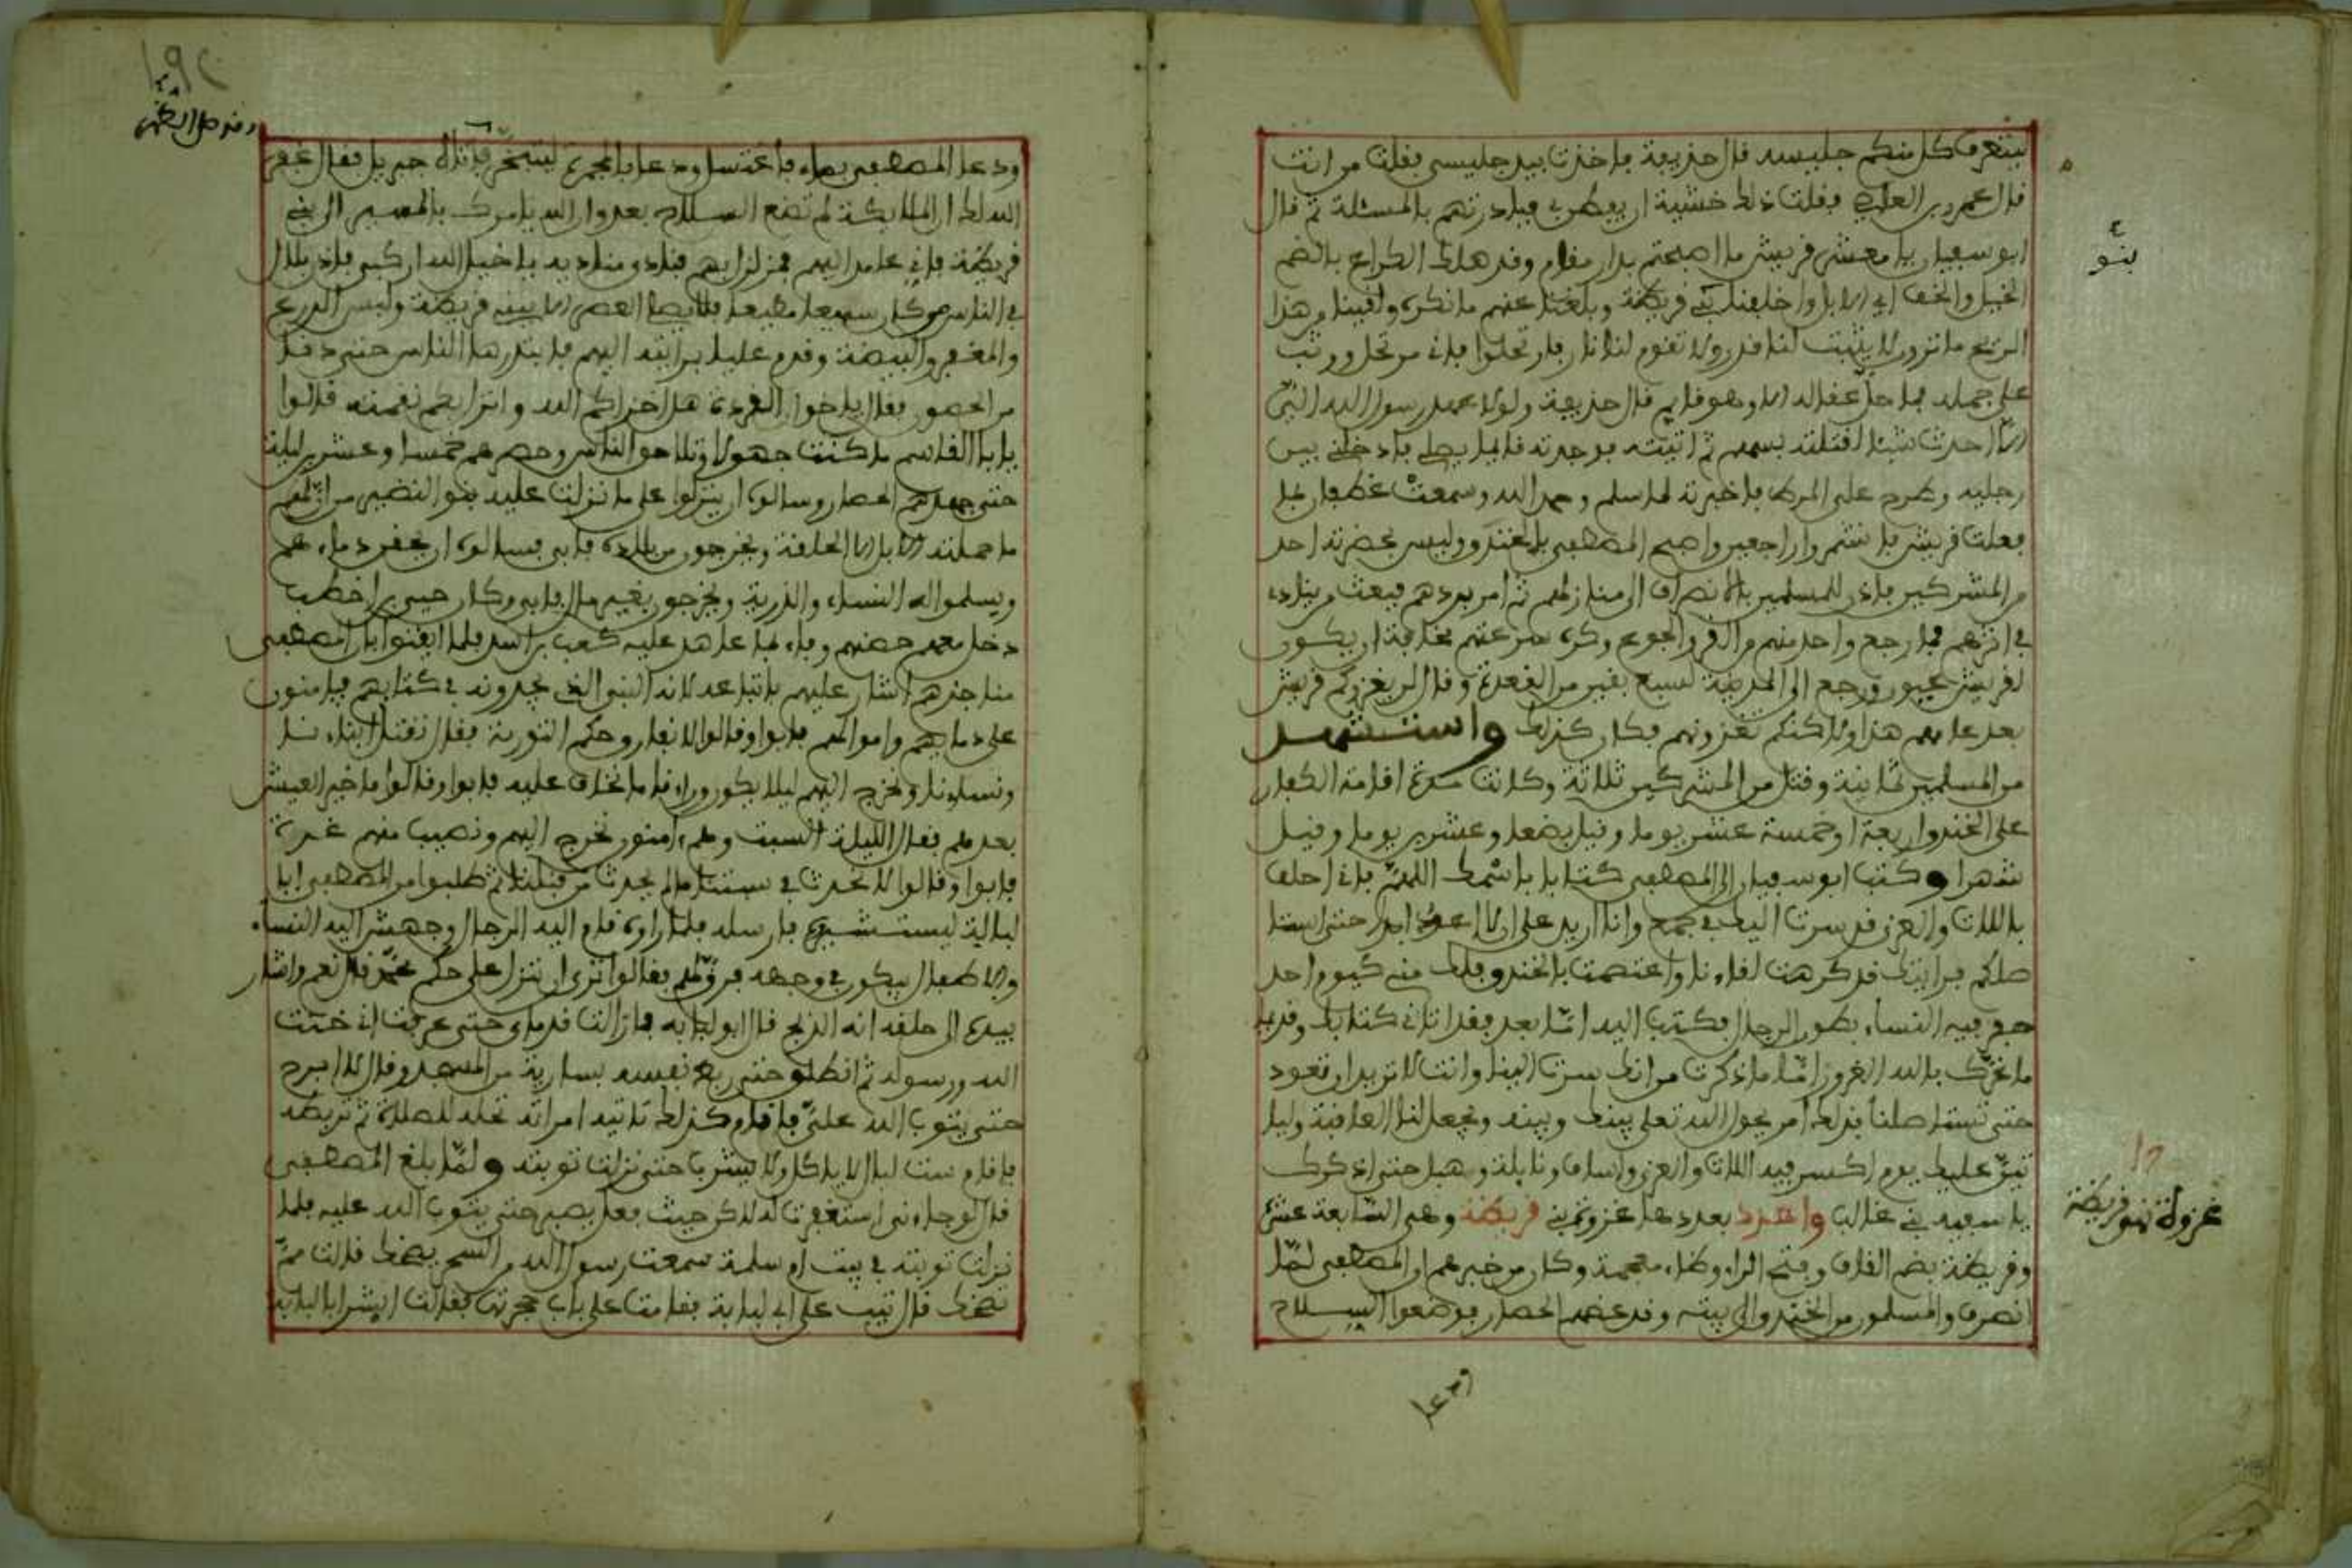 ليتعرف كل منكم جليسه قال حذيفة فاخذت بيد جليسي فقلت من انت
قال عمرو بن العاصي فقلت ذلك خشية ان يفطن بي فبادرتهم بالمسئلة ثم قال
ابو سفيان يا معشر قريش ما اصبحتم بدار مقام وقد هلك الكراع بالضم
الخيل والخف اي الابل واخلفتنا بني قريظة وبلغنا عنهم ما نكره ولقينا من هذا
الريح ما ترون لا يثبت لنا قدر ولا تقوم لنا نار فارتحلوا فاني مرتحل ووثب
على جمله فما حل عقاله الا وهو قايم قال حذيفة ولولا عهد رسول الله الي
الا احدث شيئا لقتلته بسهم ثم اتيته فوجدته قايما يصلي فادخلني بين
رجليه وطرح علي المرط فاخبرته لما سلم وحمد الله وسمعت غطفان بما
فعلت قريش فانشمروا راجعين واصبح المصطفى بالخندق وليس بحضرته احد
من المشركين فاذن للمسلمين بالانصراف الى منازلهم ثم امر بردهم فبعث من ينادي
في اثرهم فما رجع واحد منهم من القر والجوع وكره سرعتهم مخافة ان يكون
لقريش عيون ورجع الى المدينة لسبع بقين من القعدة وقال لن يغزوكم قريش
بعد عامهم هذا ولاكنكم تغزونهم فكان كذلك واستشهد
من المسلمين ثمانية وقتل من المشركين ثلاثة وكانت مدة اقامة الكفار
على الخندق اربعة او خمسة عشر يوما وقيل بضعا وعشرين يوما وقيل
شهرا وكتب ابو سفيان الى المصطفى كتابا باسمك اللهم فاني احلف
باللات والعزى قد سرت اليك في جمع وانا اريد على ان لا اعود ابدا حتى استا
صلكم فرايتك قد كرهت لقاءنا واعتصمت بالخندق فلك مني كيوم احد
فيه النساء فكتب اليه اما بعد فقد اتاني كتابك وقديما
ما غرك بالله الغرور اما ما ذكرت من انك سرت الينا وانت لا تريد ان تعود
حتى تستاصلنا فذلك امر يحول الله تعلى بينك وبينه ويجعل لنا العاقبة وليا
تين عليك يوم اكسر فيه اللات والعزى واساف ونايلة وهبل حتى اذكرك
يا سفيه بني غالب واعدد بعدها غزوة بني قريظة وهي السابعة عشر
وقريظة بضم القاف وفتح الراء وظاء معجمة وكان من خبرهم ان المصطفى لما
انصرف والمسلمون من الخندق الى بيته وقد عضهم الحصار فوضعوا السلاح
ودعا
بنو
غزوة بنو قريظة
ودعا المصطفى بماء فاغتسل ودعا بالمجمرة ليتبخر فاتاه جبريل فقال غفر
الله لك ان الملائكة لم تضع السلاح بعد وان الله يامرك بالمسير الى بني
قريظة فاني عامد اليهم فمزلزل بهم فنادى مناديه يا خيل الله اركبي فاذن بلال
في الناس من كان سميعا مطيعا فلا يصل العصر الا ببني قريظة ولبس الدرع
والمغفر والبيضة وقدم عليا برايته اليهم فابتدرها الناس حتى دنا
من الحصون فقال يا اخوان القردة هل اخزاكم الله وانزل بكم نقمته قالوا
يا ابا القاسم ما كنت جهولا وتلاحق الناس وحصرهم خمسا وعشرين ليلة
حتى جهدهم الحصار وسالوه ان ينزلوا على ما نزلت عليه بنو النضير من ان لهم
ما حملته الابل الا الحلقة ويخرجون من بلاده فابى فسالوه ان يحقن دماءهم
ويسلموا له النساء والذرية ويخرجون بغير مال فابى وكان حيي بن اخطب
دخل معهم حصنهم وفاء لما عاهد عليه كعب بن اسد فلما ايقنوا بان المصطفى
مناجزهم اشار عليهم باتباعه لانه النبي الذي يجدونه في كتابهم فيامنون
على دمايهم واموالهم فابوا وقالوا لا نفارق حكم التورية فقال نقتل ابناءنا
ونساءنا ونخرج اليهم ليلا يكون وراءنا ما نخاف عليه فابوا وقالوا ما خير العيش
بعدهم فقال الليلة السبت وهم امنون نخرج اليهم ونصيب منهم غرة
فابوا وقالوا لا نحدث في سبتنا ما لم يحدث من قبلنا ثم طلبوا من المصطفى ابا
لبابة ليستشيره فارسله فلما راوه قام اليه الرجال وجهش اليه النساء
والاطفال يبكون في وجهه فرق لهم فقالوا ترى ان ننزل على حكم محمد قال نعم واشار
بيده الى حلقه انه الذبح قال ابو لبابة فما زالت قدماي حتى عرفت اني خنت
الله ورسوله ثم انطلق حتى ربط نفسه بسارية من المسجد وقال لا ابرح
حتى يتوب الله علي فاقام كذلك تاتيه امراته تحله للصلاة ثم تربطه
فاقام ست ليال لا ياكل ولا يشرب حتى نزلت توبته ولما بلغ المصطفى
قال لو جاءني استغفرت له لاكن حيث فعل يصبر حتى يتوب الله عليه فلما
نزلت توبته في بيت ام سلمة سمعت رسول الله من السحر يضحك قالت مم
تضحك قال تيب على ابي لبابة فقامت على باب حجرتها فقالت ابشر ابا لبابة